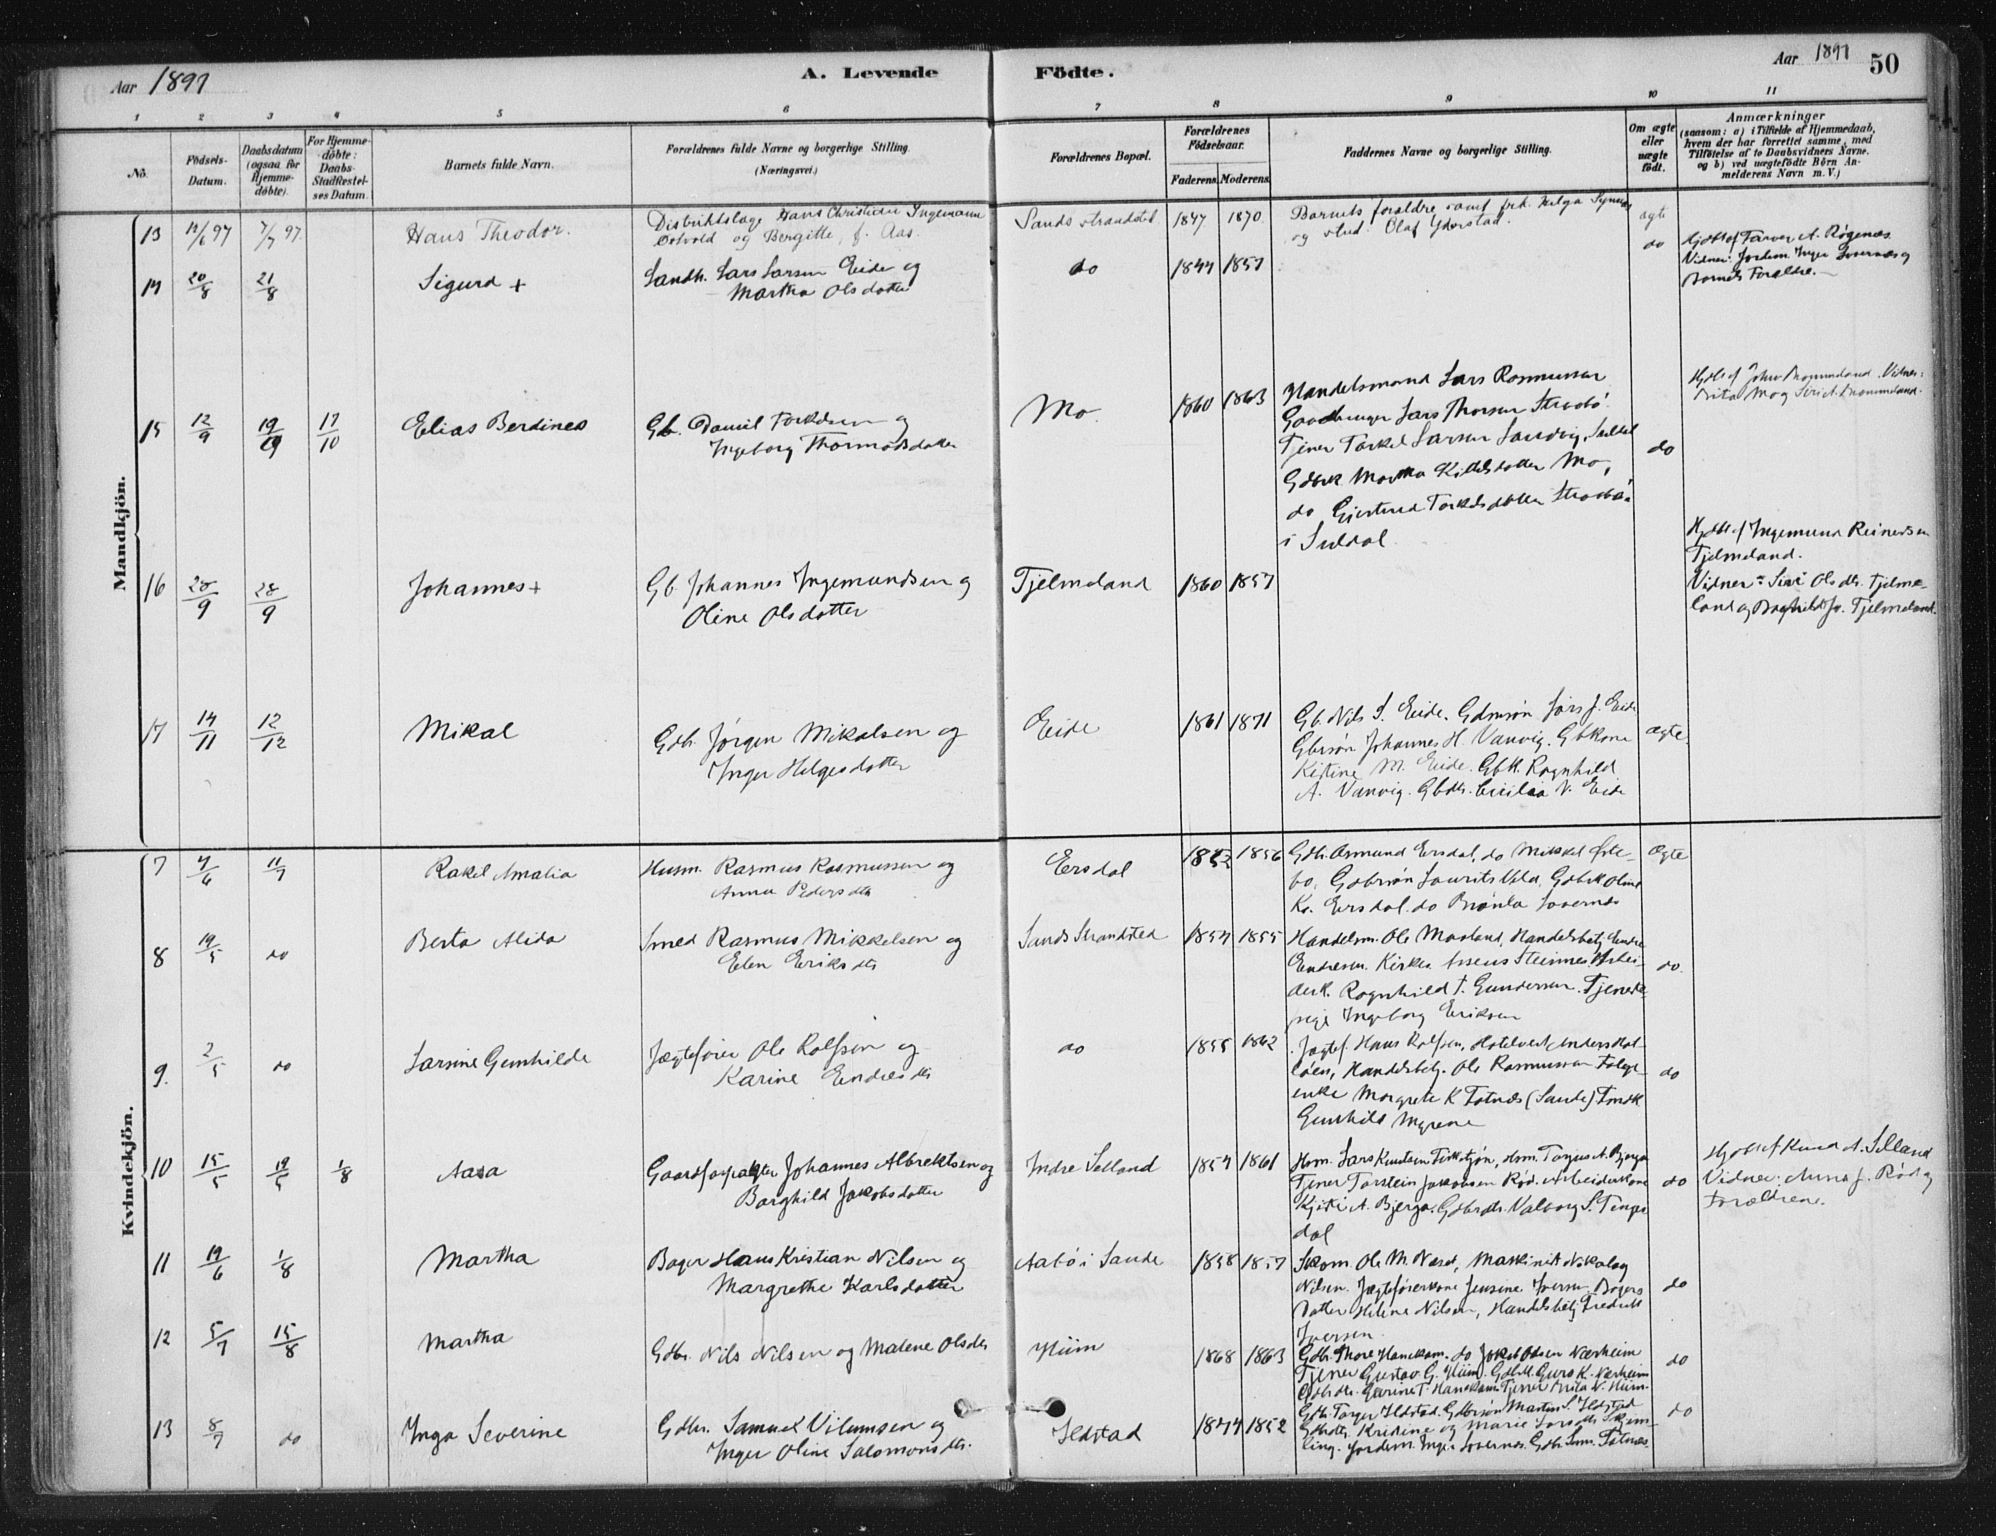 Aar 1897
A. Levende Födte.
Aar 1897
50
1 2 3 4 5 6 7 8 9 10 11
No.
Födsels-Datum.
Daabsdatum (ogsaa for Hjemme-döbte).
For Hjemme-döbte: Daabs-Stadfæstel-ses Datum.
Barnets fulde Navn.
Forældrenes fulde Navne og borgerlige Stilling. (Næringsvei.)
Forældrenes Bopæl.
Forældrenes Födselsaar.
Faderens. Moderens.
Faddernes Navne og borgerlige Stilling.
Om ægte eller uægte födt.
Anmærkninger
(saasom: a) i Tilfælde af Hjemmedaab, hvem der har forrettet samme, med Tilföielse af to Daabsvidners Navne. og b) ved uægtefödte Börn Anmelderens Navn m. V.)
Mandkjön.
13 /6 97 7/7 97. Hans Theodor.
Distriktslæge Hans Christian Ingemann
og Bergitte, f. Aas.
Sands strandsted 1847 1870
Barnets forældre samt frk. Helga
og stud. Olaf
ægte
14 20/8 21/8 Sigurd +
Lars Larsen Eide og
Martha Olsdatter
do 1844 1857 do
Hjdbt af A. Røgenæs
Vidner: Jordem. Inger Lovernæs og
Barnets Forældre.
15 12/9 19/9 17/10 Elias Berdines
Gb. Daniel Torkelsen og
Ingeborg Thormodsdatter
Mo. 1860 1863
Handelsmand Lars Rasmussen
Gaardbruger Lars Thorsen Straabø
Tjener Torkel Larsen Sandvig, Suldal
Gdbrk Martha Kittelsdatter Mo,
do Gjertrud Torkelsdatter
i Suldal
do
Hjdbt af John Vidner:
Brita Mo og Siri A.
16 28/9 28/9 Johannes +
Gb. Johannes Ingemundsen og
Oline Olsdatter
Tjelmeland 1860 1857
Hjdbt af Ingemund Reinertsen
Tjelmeland.
Vidner: Siri Olsdtr. Tjelme-
land og Tjelmeland.
17 14/11 12/12 Mikal
Gdb. Jørgen Mikalsen og
Inger Helgesdatter
Eide 1861 1871
Gb. Nils S. Eide. Lars J. Eide
Gbrsøn Johannes H. Vanvig. Gbkone
Kistine M. Eide. Gbk. Ragnhild
A. Vanvig. Gbdtr. N. Eide
ægte.
Kvindekjön.
7 /6 11/7 Rakel Amalia
Husm. Rasmus Rasmussen og
Anna Pedersdtr
Eersdal 1856
Gdb. Asmund Eersdal, do Mikkel Øste-
bø, Gdbrsøn Laurits Gdbrk Oline
Kr. Eersdal. do Lovernæs
Ægte
8 19/5 do Berta Alida
Smed Rasmus Mikkelsen og
Elen Eriksdtr
Sands Strandsted 1854 1855
Handelsm. Ole Maaland, Handelsbetj. Endre
Endresen. Kirkes. Steinnes Arbei-
derk. Ragnhild T. Gundersen. Tjeneste-
pige Ingeborg Eriksen
do.
9. 2/5 do Larsine Gunhilde
Jægtefører Ole Rolfsen og
Karine Endresdtr
do 1855 1862
Jægtef. Hans Rolfsen, Anders
Handelsbetj. Ole Rasmussen
enke Margrete K Totnæs (Sande)
Gunhild Myrene
do
10 15/5 19/5 1/8 Aasa
Gaardforpagter Johannes Albrektsen og
Borghild Jakobsdatter
Indre Selland 1854 1861
Hsm. Lars Knutsen Hsm. Torjus A. Bjerga
Tjener Torstein Jakobsen Rød. Arbeiderkone
Kjiti A. Bjerga. Gdbrdtr. Valborg S. Tengs-
dal
do
Hjdbt af Knud A. Selland
Vidner: Anna J. Rød og
Forældrene.
11 19/6 1/8 Martha
Bager Hans Kristian Nilsen og
Margrethe Karlsdatter
Aabø i Sande 1858 1857
Skom. Ole M. Næsø, Maskinist Nikolay
Nilsen. Jægteførerkone Jensine Iversen Bagers
Datter Helene Nilsen, Handelsbetj. Fredrik
Iversen.
do
12 5/7 15/8 Martha
Gdbr. Nils Nilsen og Malene Olsdtr
Hiim 1868 1863
Gdb. Thore Hanekam. do Jakob Olsen Nærheim
Tjener Gustav G. Hiim. Gdbrk. Guro K. Nærheim
Gdbrdtr. T. Hanekam. Tjener Brita N. Hiim.
do
13 8/7 do Inga Severine
Gdbr. Samuel Vilumsen og
Inger Oline Salomonsdtr.
Ilstad 1852
Gdb. Torger Ilstad. Gdbrsøn Martin S. Ilstad
Gdbrdtr. Kristine og Marie Larsdtr
Jordem. Inger Lovernæs. Gdb. Totnæs.
do